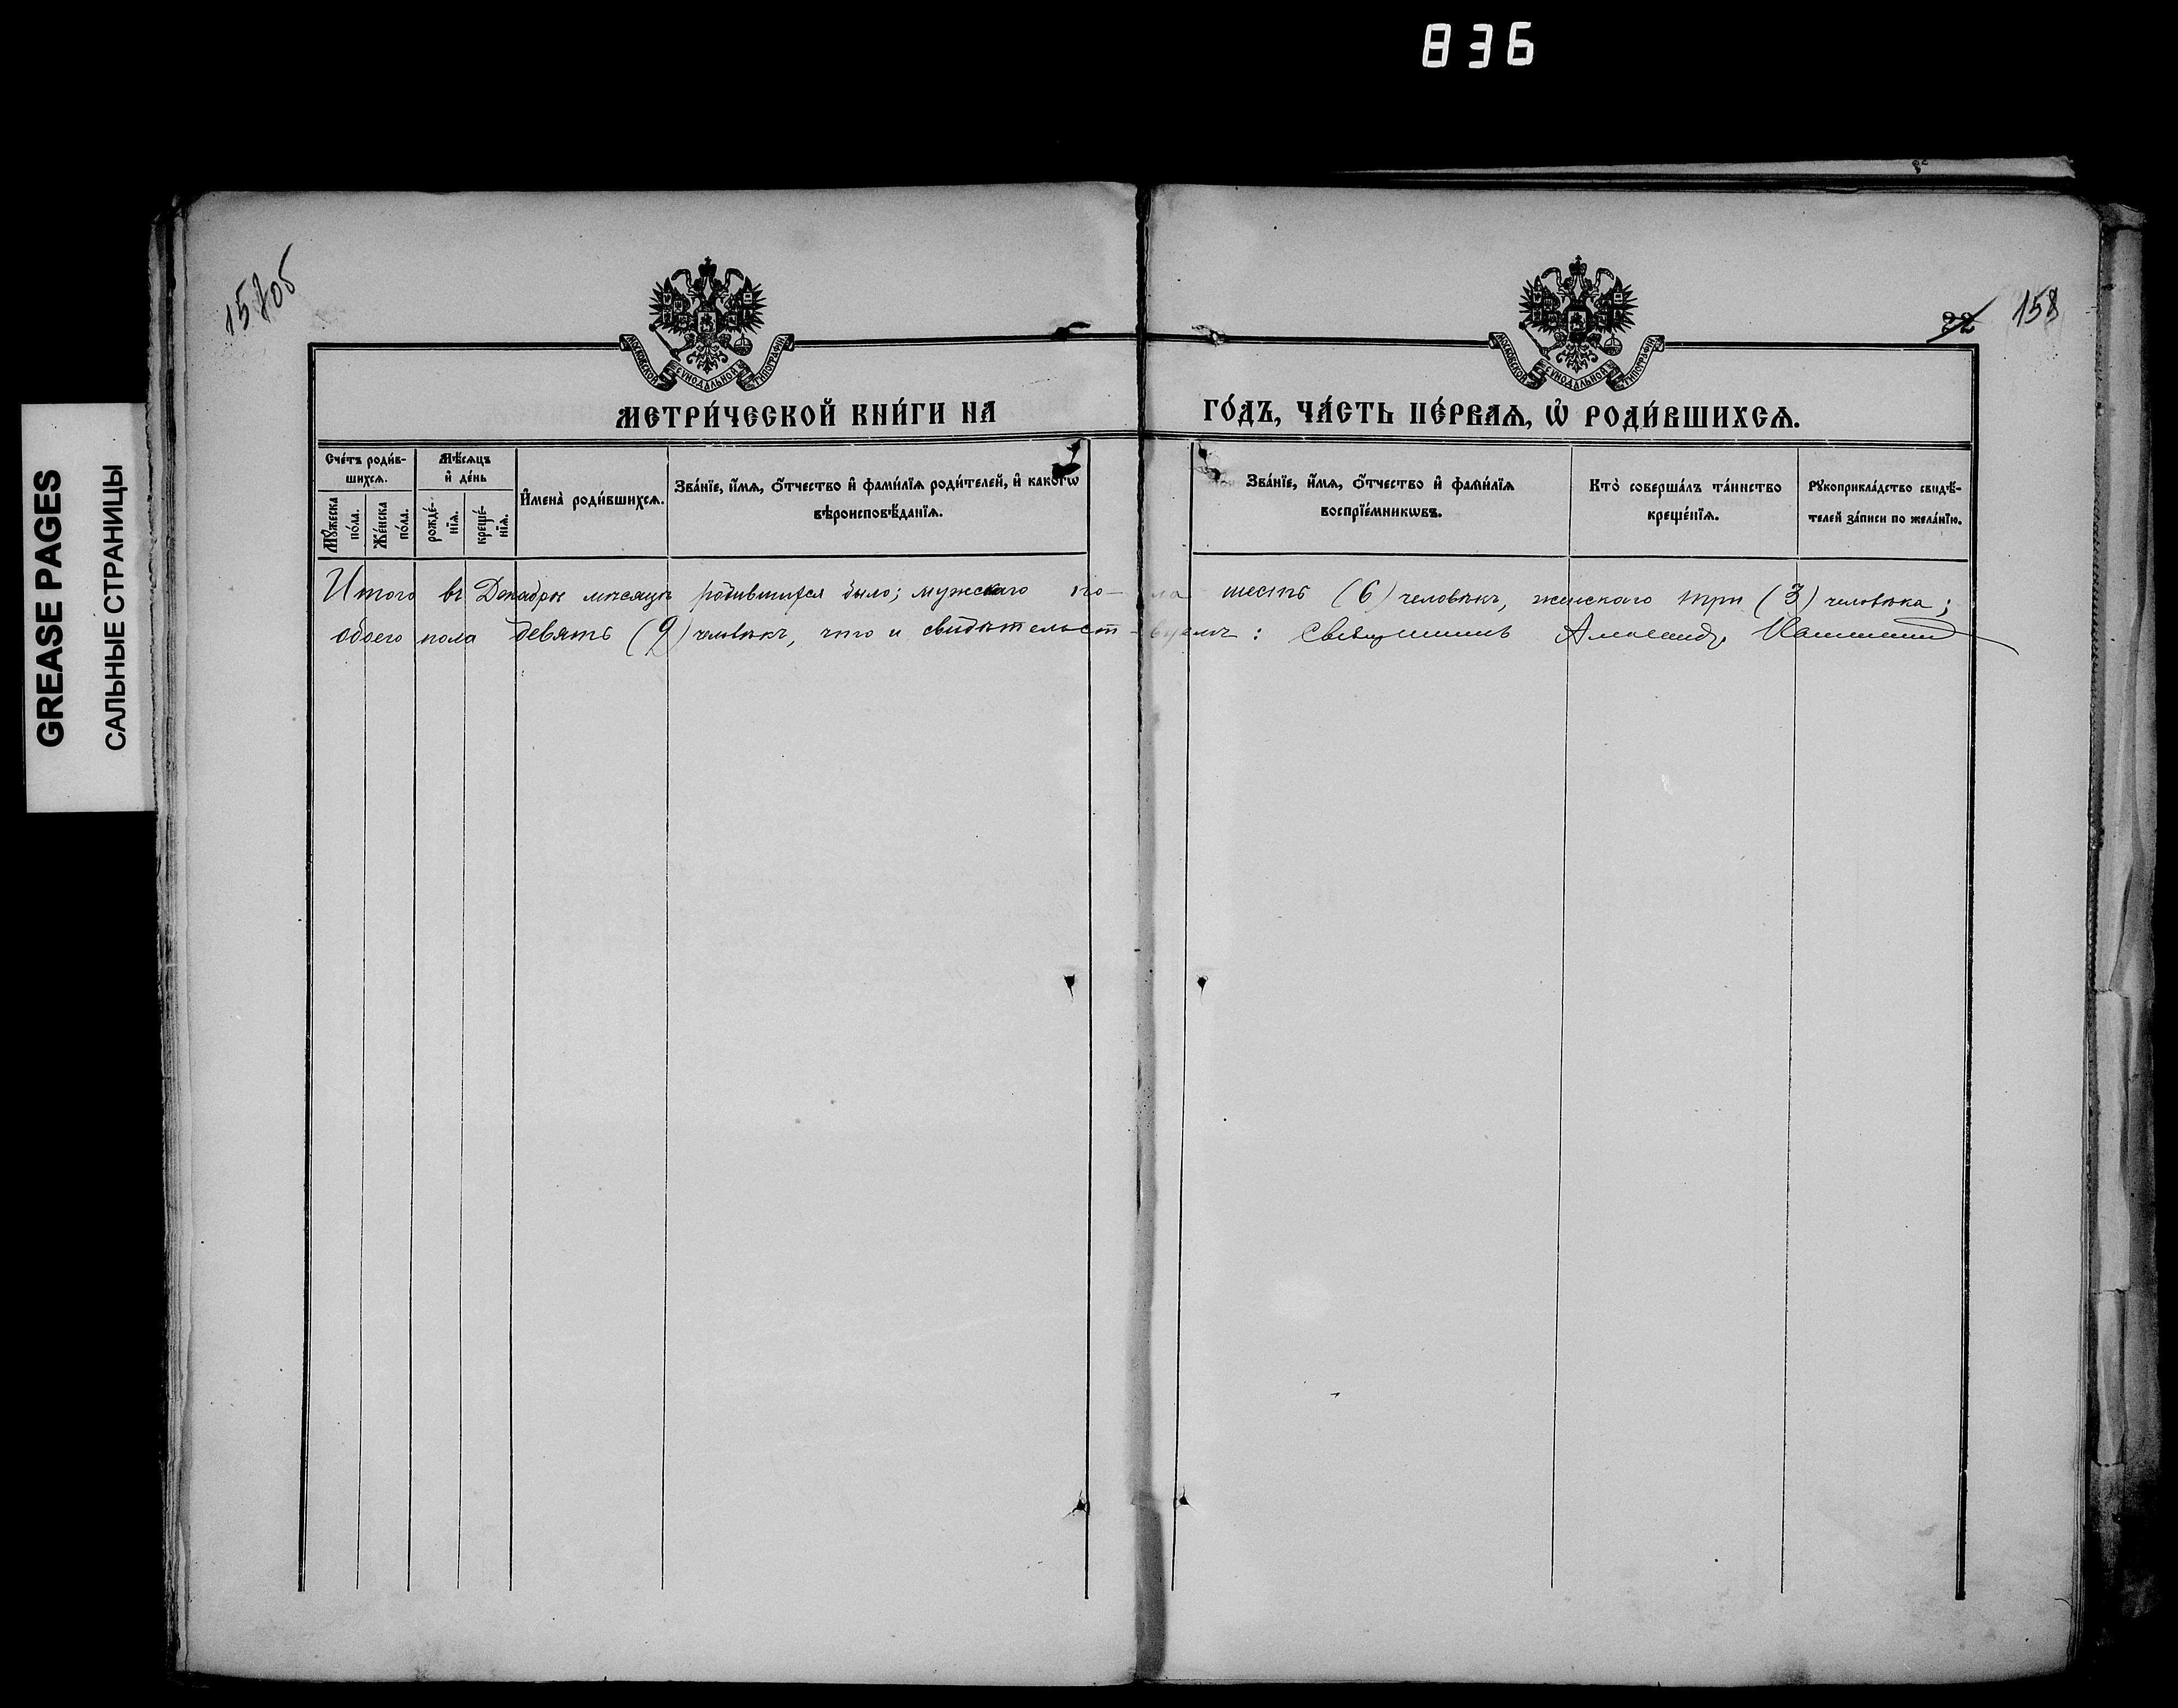 836
GREASE PAGES
САЛЬНЫЕ СТРАНИЦЫ
158
МОСКОВСКОЙ СУНОДАЛЬНОЙ ТИПОГРАФІИ
МОСКОВСКОЙ СУНОДАЛЬНОЙ ТИПОГРАФІИ
МЕТРИ́ЧЕСКОЙ КНИ́ГИ НА ГО́ДЪ, ЧА́СТЬ ПЕ́РВАѦ, Ѽ РОДИ́ВШИХСѦ.
Сче́тъ роди́в-
шихсѧ.
Мꙋ́жеска
по́ла.
Же́нска
по́ла.
Мѣ́сѧцъ
и҆ де́нь
рожде́-
нїѧ.
креще́-
нїѧ.
И҆мена̀ роди́вшихсѧ.
Зва́нїе, и҆́мѧ, ѻ҆́тчество и҆ фами́лїѧ роди́телей, и҆ како́гѡ
вѣроисповѣ́данїѧ.
Зва́нїе, и҆́мѧ, ѻ҆́тчество и҆ фами́лїѧ
воспрїе́мникѡвъ.
Кто̀ соверша́лъ та́инство
креще́нїѧ.
Рꙋкоприкла́дство свидѣ́-
телей за́писи по жела́нїю.
Итого въ Декабрѣ мѣсяцѣ родившихся было; мужскаго по-ла шесть (6) человѣкъ, женскаго три (3) человѣка;
обоего пола девять (9) человѣкъ, что и свидѣтельст-вуемъ: Священникъ